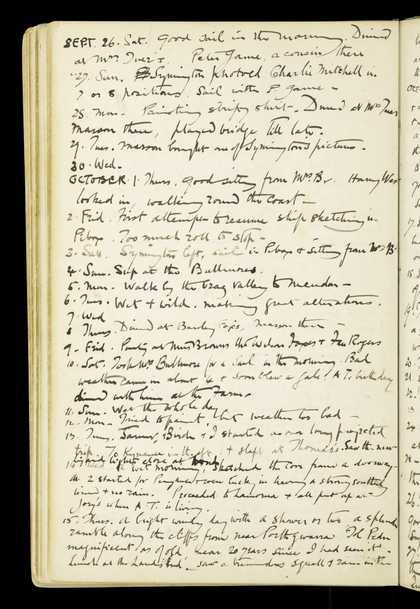 SEPT. 26. Sat. Good sail in the morning. Dined
at Mrs Ivers. Peter Game, a cousin there
27. Sun. Symington photoed Charlie Mitchell in
7 or 8 positions, Sail with P Game -
28. Mon. Painting stripy shirt - Dined at Mrs Ivers
Masson there, played bridge till late.
29. Tues. Masson bought one of Symington's pictures.
30. Wed.
OCTOBER 1. Thurs. Good sitting from Mrs B. Harvey
looked in, walking round the coast -
2. Frid. First attempt to resume ship sketching in
Too much roll to stop -
3. Sat. Symington left, sail in & sitting from Mrs B.
4. Sun. Sup at the Bullmores.
5. Mon - Walk by the valley to
6. Tues. Wet & wild. making great alterations.
7. Wed
8 Thurs Dined at Masson there
9 - Frid. Party at Mrs Browns the & Rogers
10. Sat. Took Mrs Bullmore for a sail in the morning Bad
weather came on about 4 & soon blew a gale! A T. birthday
dined with him at the Farm
11. Sun. Wet the whole day
12. Mon - Tried to paint, but weather too bad -
13 Tues. & I started on our long projected
trip. To Kynance & slept at Thomas's Saw the new
14 Wed wet morning, sketched the Cove from a doorway -
at 2 started for luck, in having a strong southerly
wind & no rain. Proceeded to & all put up at
where A T. is living.
15. Thurs. A bright windy day with a shower or two a splendid
ramble along the cliffs from near Porthgwarra
magnificent as of old, near 20 years since I had seen it -
lunch at the Land's End, saw a tremendous squall & rain in the